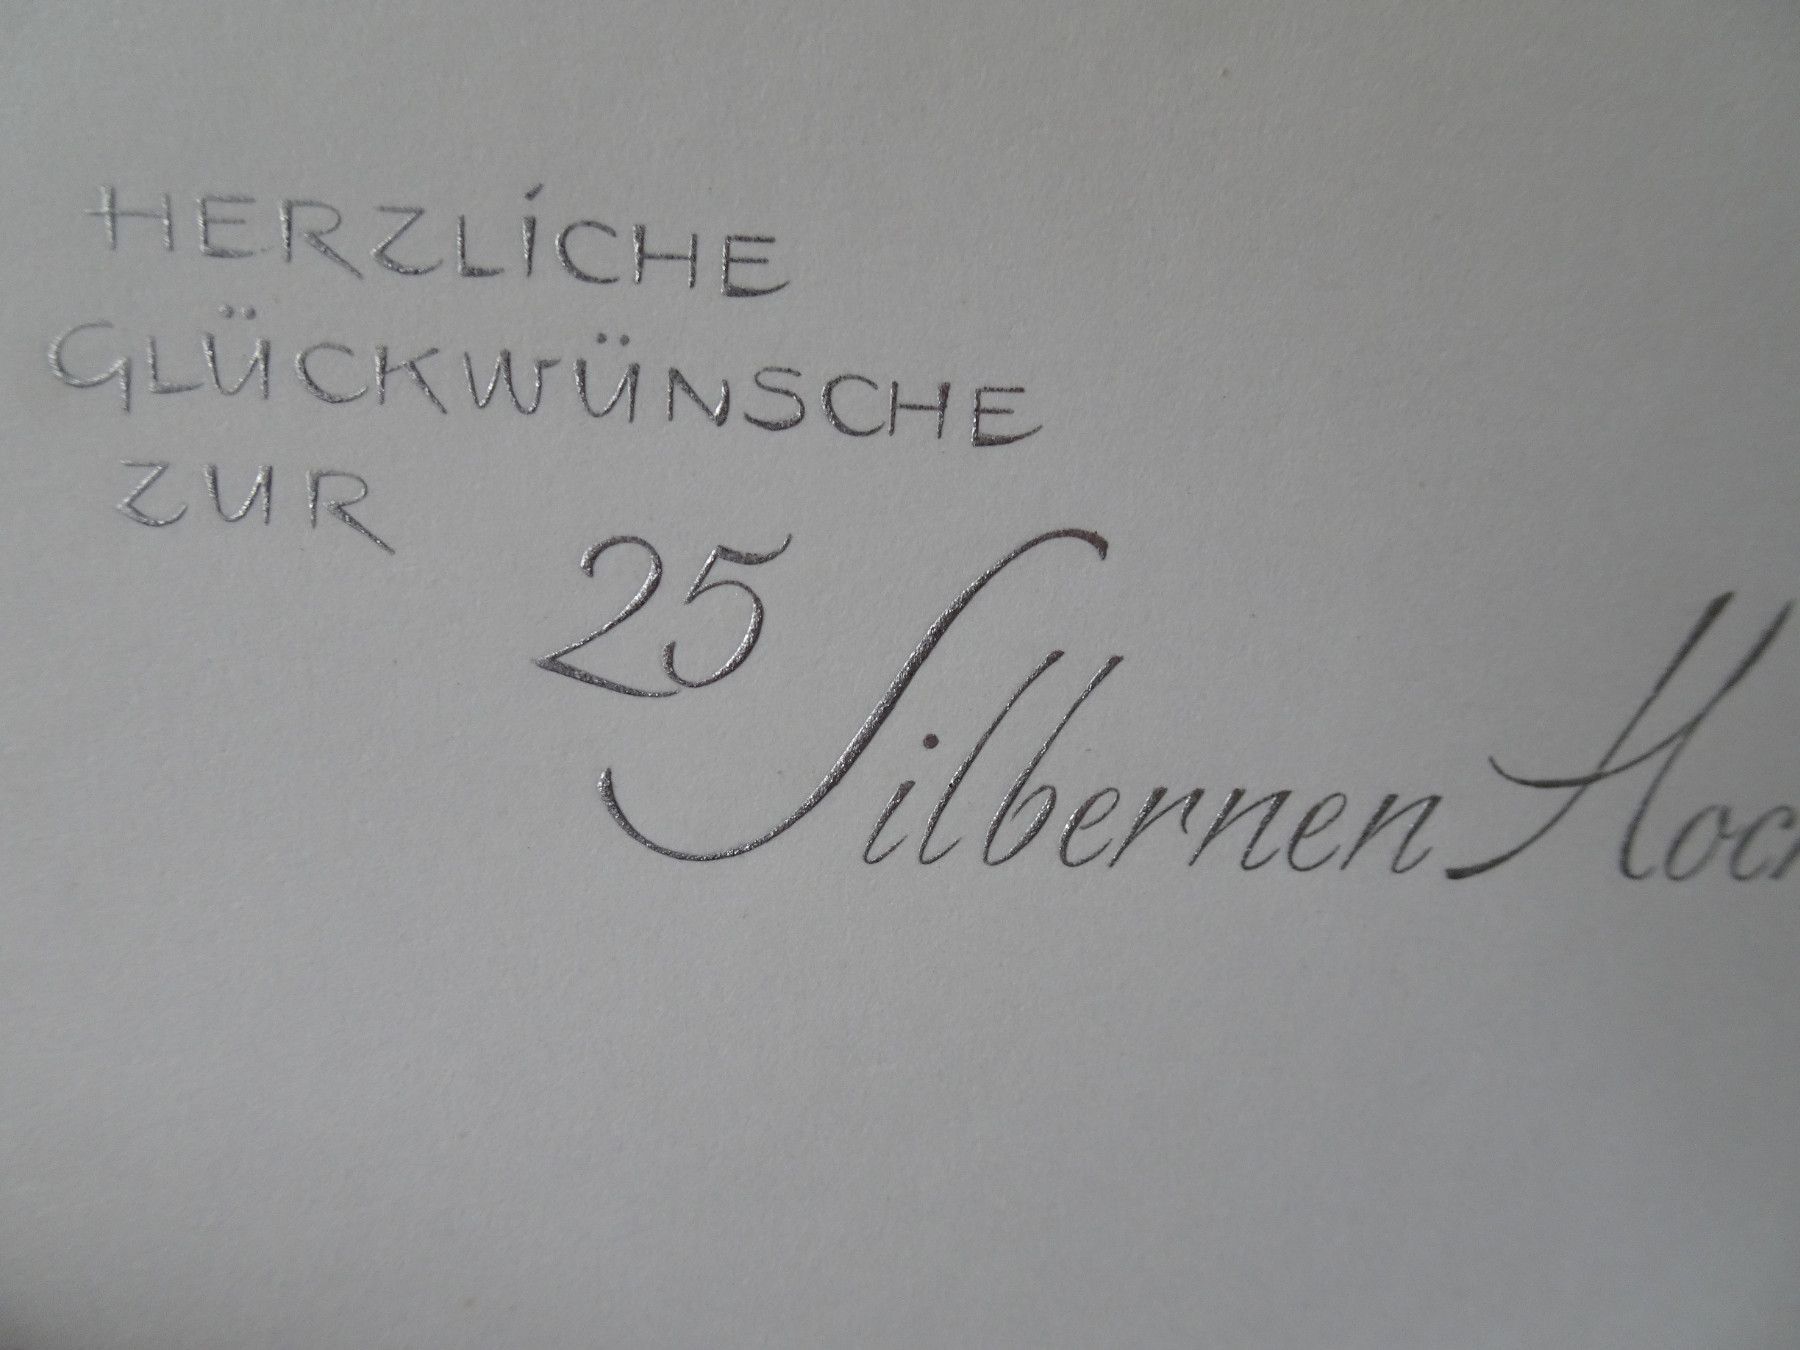 HERZLICHE
GLÜCKWÜNSCHE
ZUR
25
Silbernen Hoch